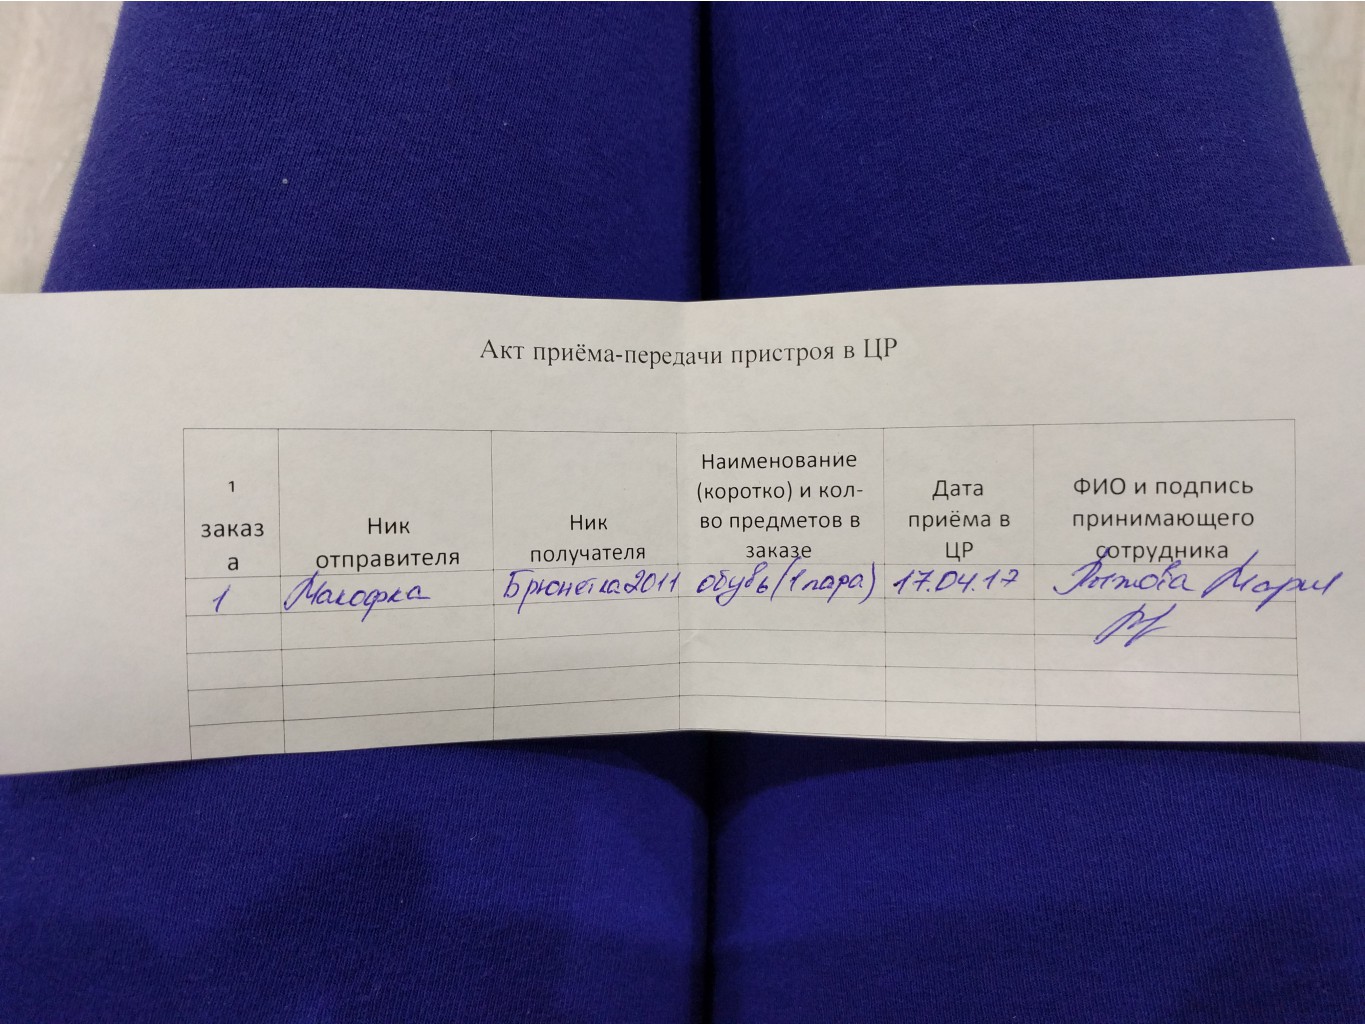 Акт приёма-передачи пристроя в ЦР
1 заказа
Ник отправителя
Ник получателя
Наименование (коротко) и кол-во предметов в заказе
Дата приёма в ЦР
ФИО и подпись принимающего сотрудника
1 Малофка Брюнетка2011 обувь (1 пара) 17.04.17 Рыжова Мария